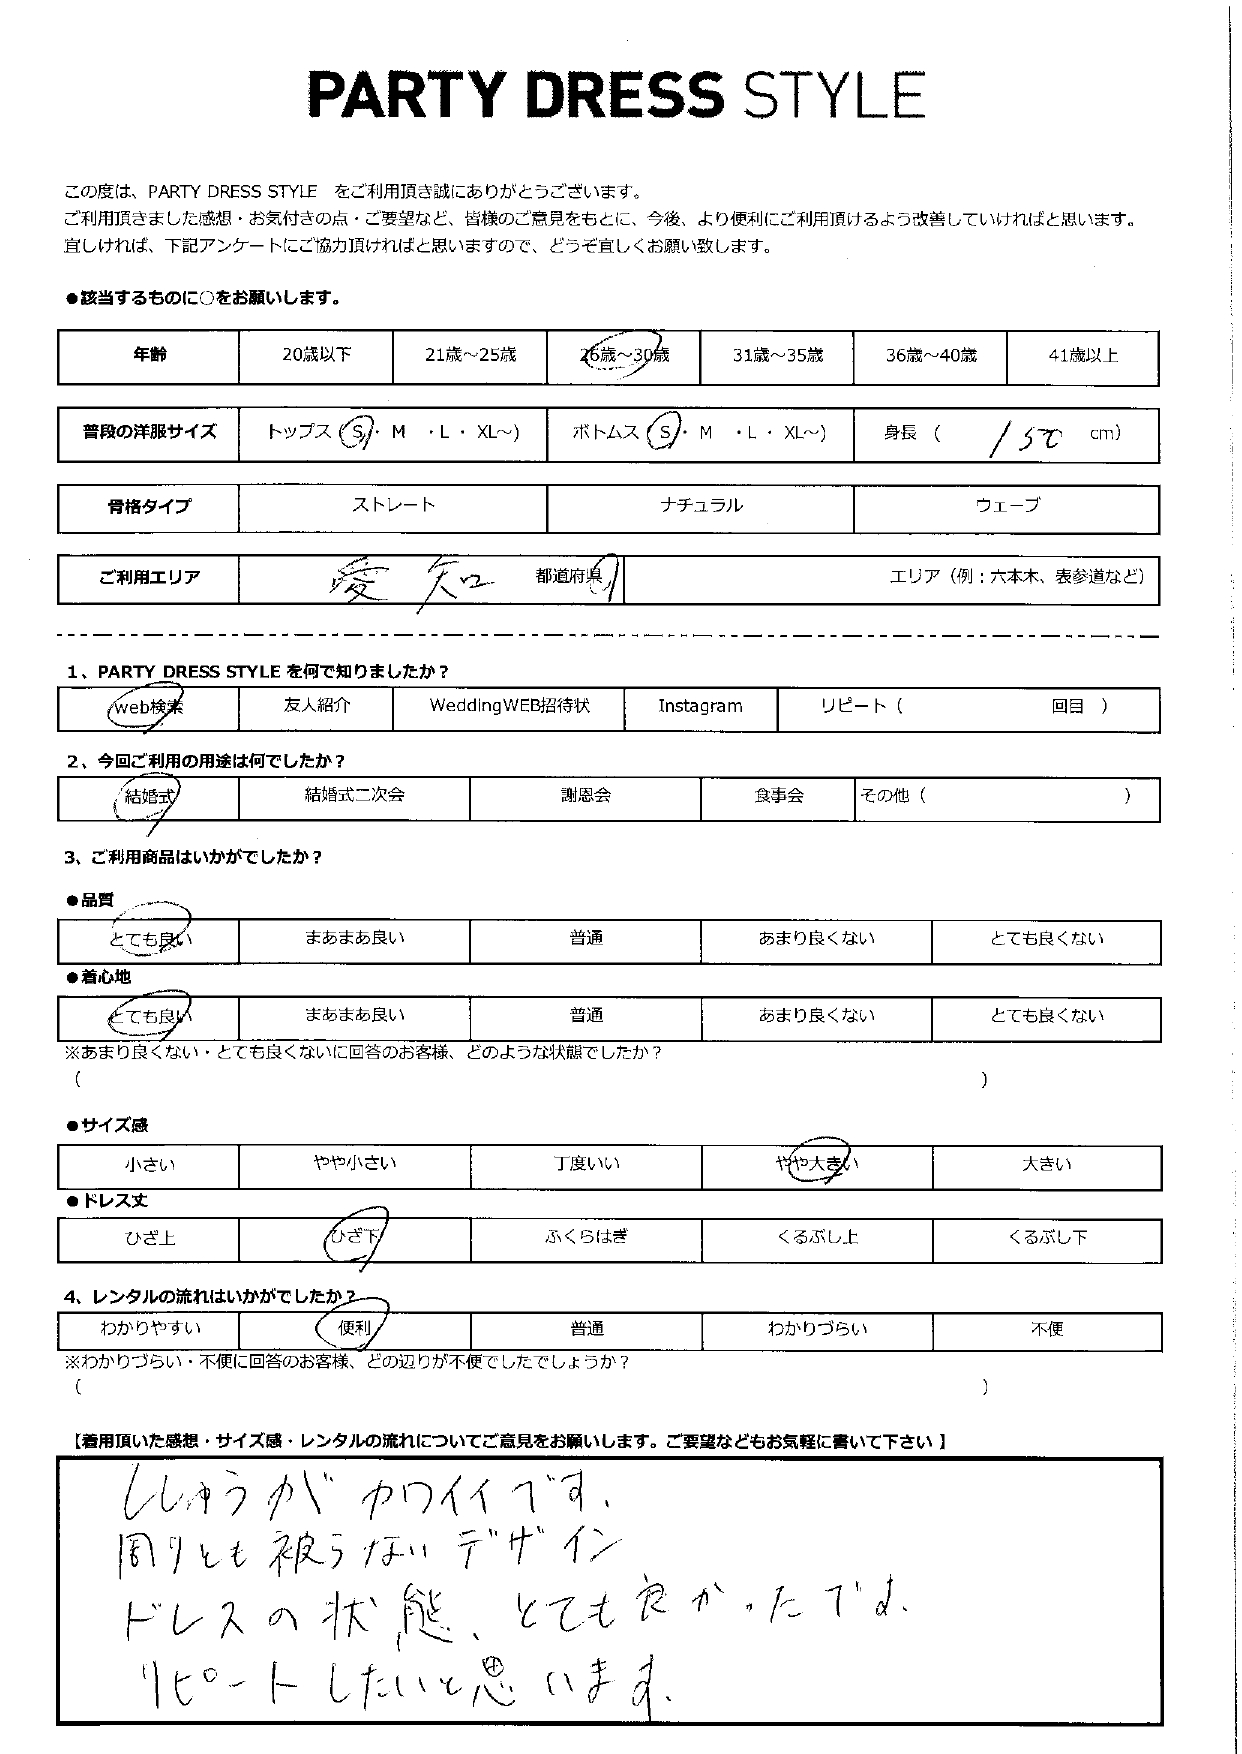 PARTY DRESS STYLE
この度は、PARTY DRESS STYLE をご利用頂き誠にありがとうございます。
ご利用頂きました感想・お気付きの点・ご要望など、皆様のご意見をもとに、今後、より便利にご利用頂けるよう改善していければと思います。
宜しければ、下記アンケートにご協力頂ければと思いますので、どうぞ宜しくお願い致します。
●該当するものに○をお願いします。
年齢 20歳以下 21歳～25歳 26歳～30歳 31歳～35歳 36歳～40歳 41歳以上
普段の洋服サイズ トップス (S・ M ・L ・ XL～) ボトムス (S・ M ・L ・ XL～) 身長 ( 150 cm)
骨格タイプ ストレート ナチュラル ウェーブ
ご利用エリア 愛知 都道府県 エリア（例：六本木、表参道など）
1、PARTY DRESS STYLE を何で知りましたか？
web検索 友人紹介 WeddingWEB招待状 Instagram リピート（ 回目 ）
2、今回ご利用の用途は何でしたか？
結婚式 結婚式二次会 謝恩会 食事会 その他（ ）
3、ご利用商品はいかがでしたか？
●品質
とても良い まあまあ良い 普通 あまり良くない とても良くない
●着心地
とても良い まあまあ良い 普通 あまり良くない とても良くない
※あまり良くない・とても良くないに回答のお客様、どのような状態でしたか？
( )
●サイズ感
小さい やや小さい 丁度いい やや大きい 大きい
●ドレス丈
ひざ上 ひざ下 ふくらはぎ くるぶし上 くるぶし下
4、レンタルの流れはいかがでしたか？
わかりやすい 便利 普通 わかりづらい 不便
※わかりづらい・不便に回答のお客様、どの辺りが不便でしたでしょうか？
( )
【着用頂いた感想・サイズ感・レンタルの流れについてご意見をお願いします。ご要望などもお気軽に書いて下さい 】
ししゅうが カワイイです.
周りとも被らない デザイン
ドレスの状態、とても良かったです.
リピートしたいと思います.